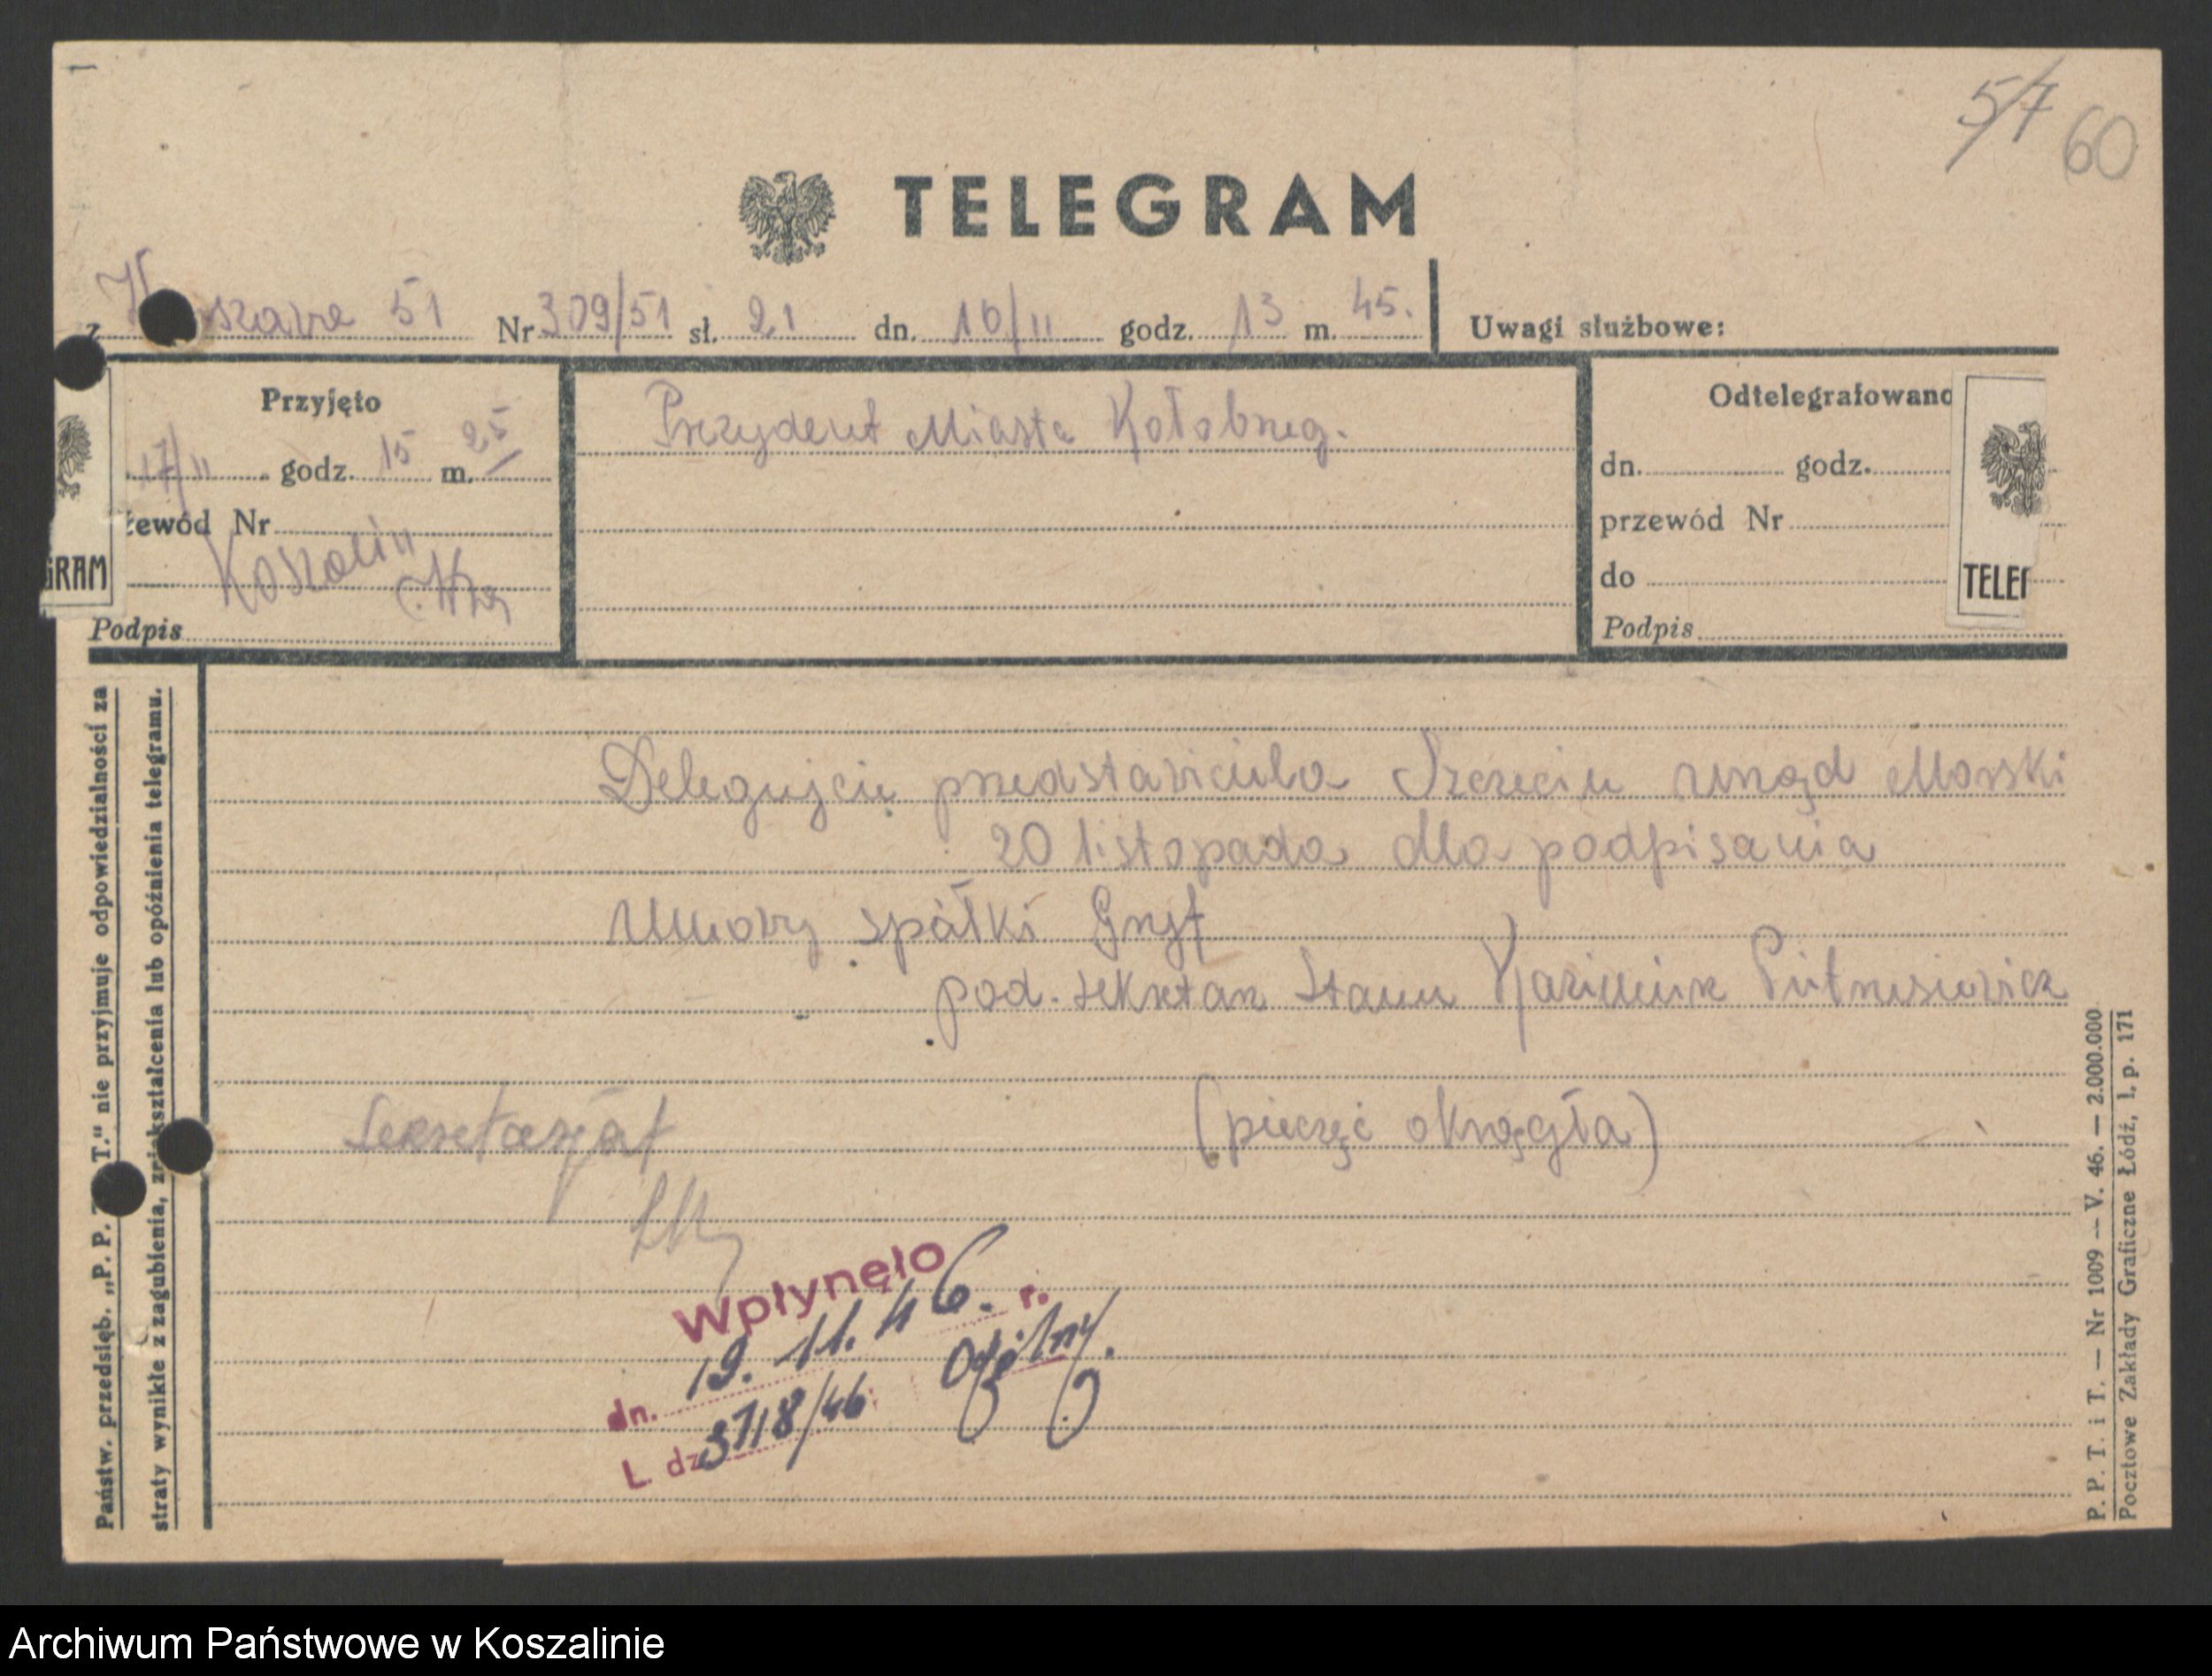 5/7 60
TELEGRAM
z Warszawa 51 Nr 309/51 sł. 21 dn. 16/11 godz. 13 m. 45. Uwagi służbowe:
Przyjęto
17/11 godz. 15 m. 25
żewód Nr
Koszalin
Podpis
GRAM
Prezydent Miasta Kołobrzeg.
Odtelegrafowano
dn. godz.
przewód Nr
do
Podpis
TELE
Delegujcie przedstawiciela Szczecin Urząd Morski
20 listopada dla podpisania
Umowy spółki Gryf
pod. sekretarz Stanu Kazimierz Pietrusiewicz
Sekretarjat (pieczęć okrągła)
Wpłynęło
dn. 19. 11. 46. r.
L. dz. 3718/46
Państw. przedsięb. „P. P. T. T." nie przyjmuje odpowiedzialności za
straty wynikłe z zagubienia, zniekształcenia lub opóźnienia telegramu.
P. P. T. i T. — Nr 1009 — V. 46. — 2.000.000
Pocztowe Zakłady Graficzne Łódź, l. p. 171
Archiwum Państwowe w Koszalinie